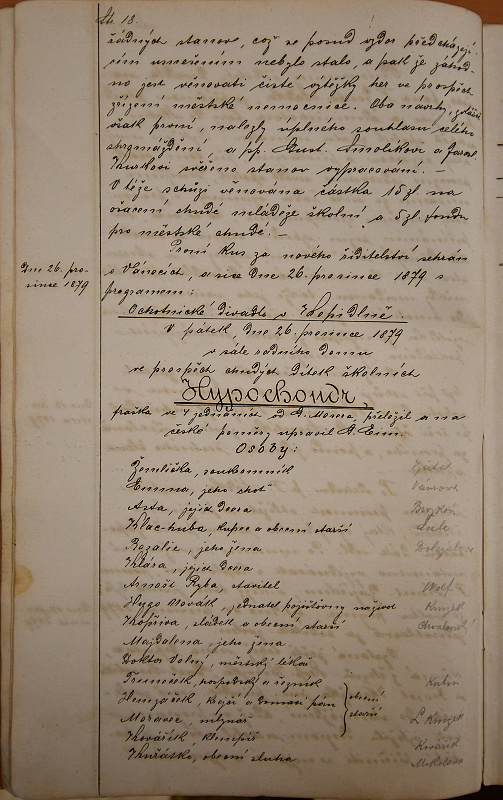 Str. 18.
žádných stanov, což se posud vzdor předcházejí-
cím usnesením nebylo stalo, a pak je záhod-
no jest věnovati čisté výtěžky her ve prospěch
zřízení městské nemocnice. Oba návrhy, zvláště
však první, nalezly úplného souhlasu celého
shromáždění, a pp. Aust. Smolíkovi a Jarosl.
svěřeno stanov vypracování. —
V téže schůzi věnována částka 15 zl. na
ošacení chudé mládeže školní a 5 zl. fondu
pro městské chudé. —
První kus za nového ředitelství sehrán
o Vánocích, a sice dne 26. prosince 1879 s
programem:
Dne 26. pro-
since 1879
Ochotnické divadlo v Kopidlně.
V pátek dne 26. prosince 1879
v sále radního domu
ve prospěch chudých dítek školních
Hypochondr,
fraška ve 4 jednáních od G. Mosera, přeložil a na
české poměry upravil G. Eim.
Osoby:
Žemlička, soukenník
Emma, jeho choť
Asta, jejich dcera
Klachuba, kupec a obecní starší
Rozalie, jeho žena
Klára, jejich dcera
Arnošt Ryba, stavitel Wolf
Hugo Novák, jednatel pojišťovny
Kopřiva, sládek a obecní starší
Majdalena, jeho žena
Doktor Volný, městský lékař
Trumeček, hospodský a řezník
Henzáček, krejčí a domácí pán
Moravec, mlynář
obecní
starší
Kovářík klempíř Kovářík
obecní sluha